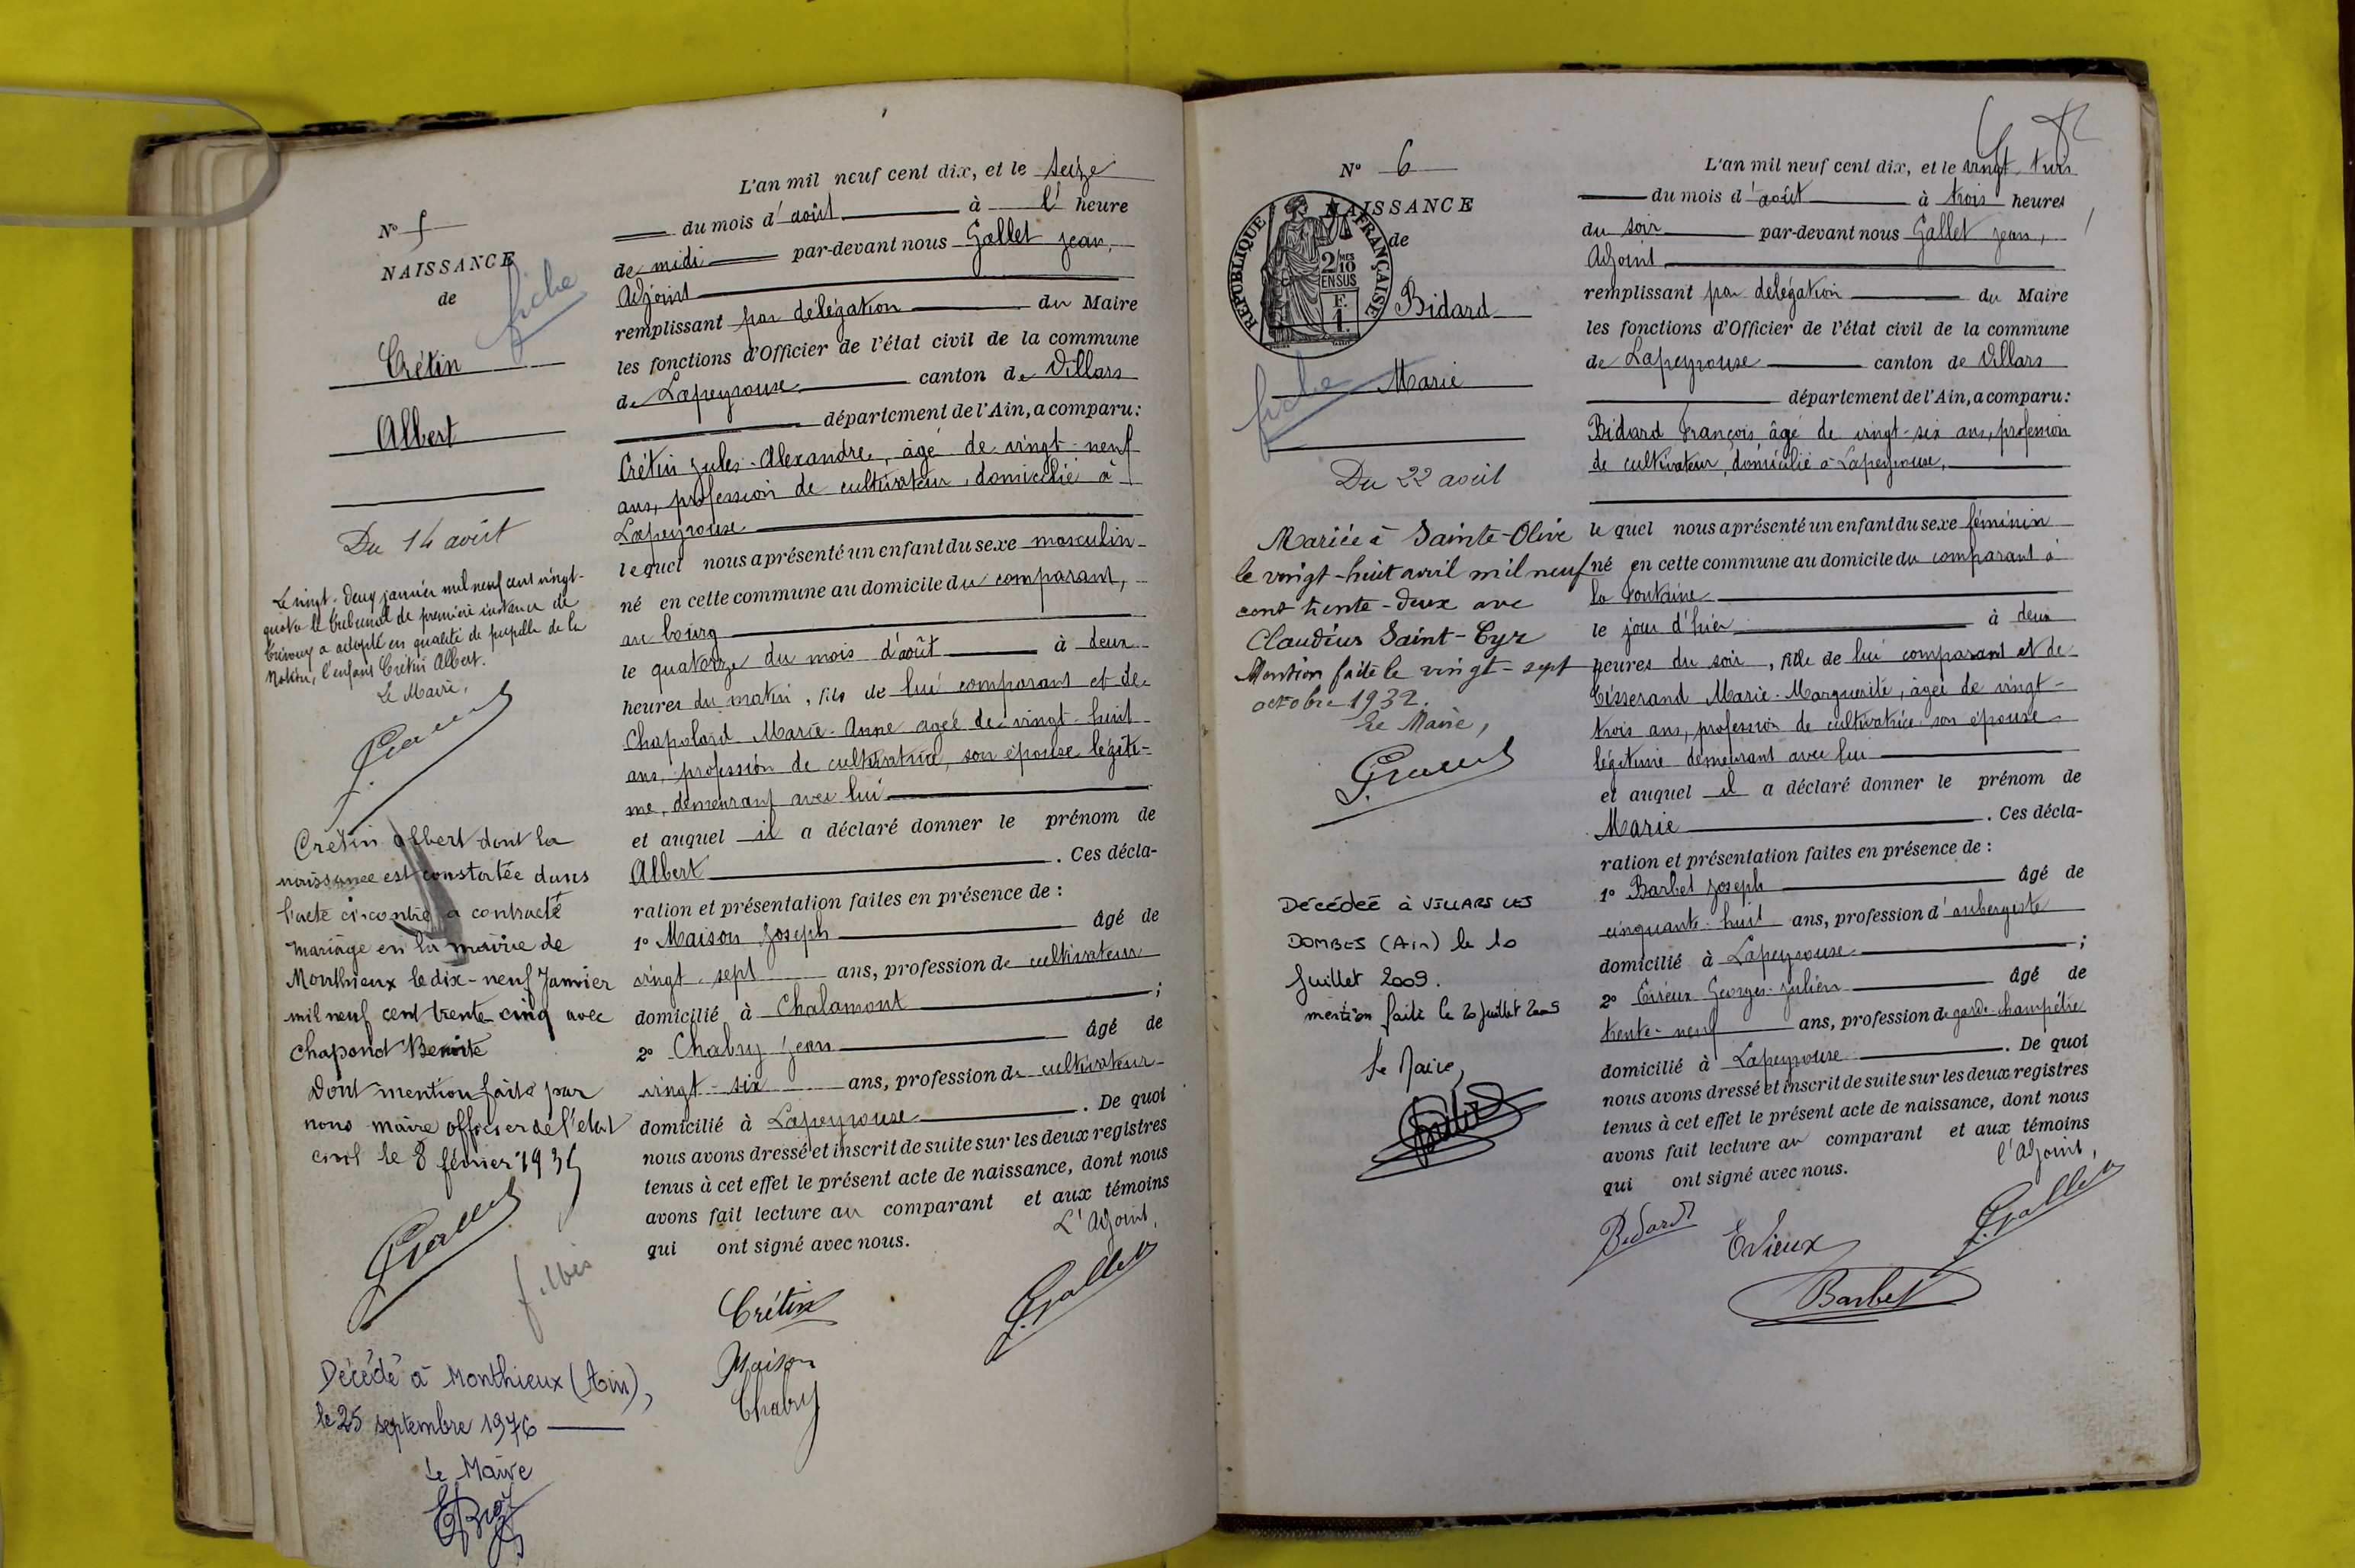 N° 5
NAISSANCE
de
fiche
Crétin
Albert
Du 14 août
Le vingt-deux janvier mil neuf cent vingt-
quatre le tribunal de première instance de
Trévoux a adopté en qualité de pupille de la
Nation, l'enfant Crétin Albert.
Le Maire,
Crétin Albert dont la
naissance est constatée dans
l'acte ci-contre a contracté
mariage en la mairie de
Monthieux le dix-neuf Janvier
mil neuf cent trente-cinq avec
Chapond Benoite
Dont mention faite par
nous maire officier de l'état
civil le 8 février 1935
Décédé à Monthieux (Ain),
le 25 septembre 1976
Le Maire
L'an mil neuf cent dix, et le seize
du mois d'août à l' heure
de midi par-devant nous Gallet Jean,
Adjoint
remplissant par délégation du Maire
les fonctions d'Officier de l'état civil de la commune
de Lapeyrouse canton de Villars
département de l'Ain, a comparu:
Crétin Jules-Alexandre, âgé de vingt-neuf
ans, profession de cultivateur, domicilié à
Lapeyrouse
lequel nous a présenté un enfant du sexe masculin
né en cette commune au domicile du comparant,
au bourg
le quatorze du mois d'août à deux
heures du matin, fils de lui comparant et de
Chapoland Marie-Anne agée de vingt-huit
ans, profession de cultivatrice, son épouse légiti-
me, demeurant avec lui
et auquel il a déclaré donner le prénom de
Albert . Ces décla-
ration et présentation faites en présence de :
1° Maison Joseph âgé de
vingt-sept ans, profession de cultivateur
domicilié à Chalamont ;
2° Chabry Jean âgé de
vingt-six ans, profession de cultivateur
domicilié à Lapeyrouse . De quoi
nous avons dressé et inscrit de suite sur les deux registres
tenus à cet effet le présent acte de naissance, dont nous
avons fait lecture au comparant et aux témoins
qui ont signé avec nous. L'Adjoint,
Crétin
J. Gallet
Maison
Chabry
N° 6
NAISSANCE
de
RÉPUBLIQUE FRANÇAISE
2/10 MES
EN SUS
F.
1.
Bidard
fiche
Marie
Du 22 août
Mariée à Sainte-Olive
le vingt-huit avril mil neuf
cent trente-deux avec
Claudius Saint-Cyr
Mention faite le vingt-sept
octobre 1932.
Le Maire,
Décédée à VILLARS LES
DOMBES (Ain) le 10
Juillet 2009.
mention faite le 20 juillet 2009
Le Maire,
L'an mil neuf cent dix, et le vingt-trois
du mois d'août à trois heures
du soir par-devant nous Gallet Jean,
Adjoint
remplissant par délégation du Maire
les fonctions d'Officier de l'état civil de la commune
de Lapeyrouse canton de Villars
département de l'Ain, a comparu:
Bidard François âgé de vingt-six ans, profession
de cultivateur, domicilié à Lapeyrouse,
le quel nous a présenté un enfant du sexe féminin
né en cette commune au domicile du comparant à
la Fontaine
le jour d'hier à deux
heures du soir, fille de lui comparant et de
Tisserand Marie-Marguerite, âgée de vingt-
trois ans, profession de cultivatrice son épouse
légitime demeurant avec lui
et auquel il a déclaré donner le prénom de
Marie . Ces décla-
ration et présentation faites en présence de :
1° Barbet Joseph âgé de
cinquante-huit ans, profession d'aubergiste
domicilié à Lapeyrouse ;
2° Evieux Georges-Julien âgé de
trente-neuf ans, profession de garde-champêtre
domicilié à Lapeyrouse . De quoi
nous avons dressé et inscrit de suite sur les deux registres
tenus à cet effet le présent acte de naissance, dont nous
avons fait lecture au comparant et aux témoins
qui ont signé avec nous. l'Adjoint,
Bidard
Evieux
J. Gallet
Barbet